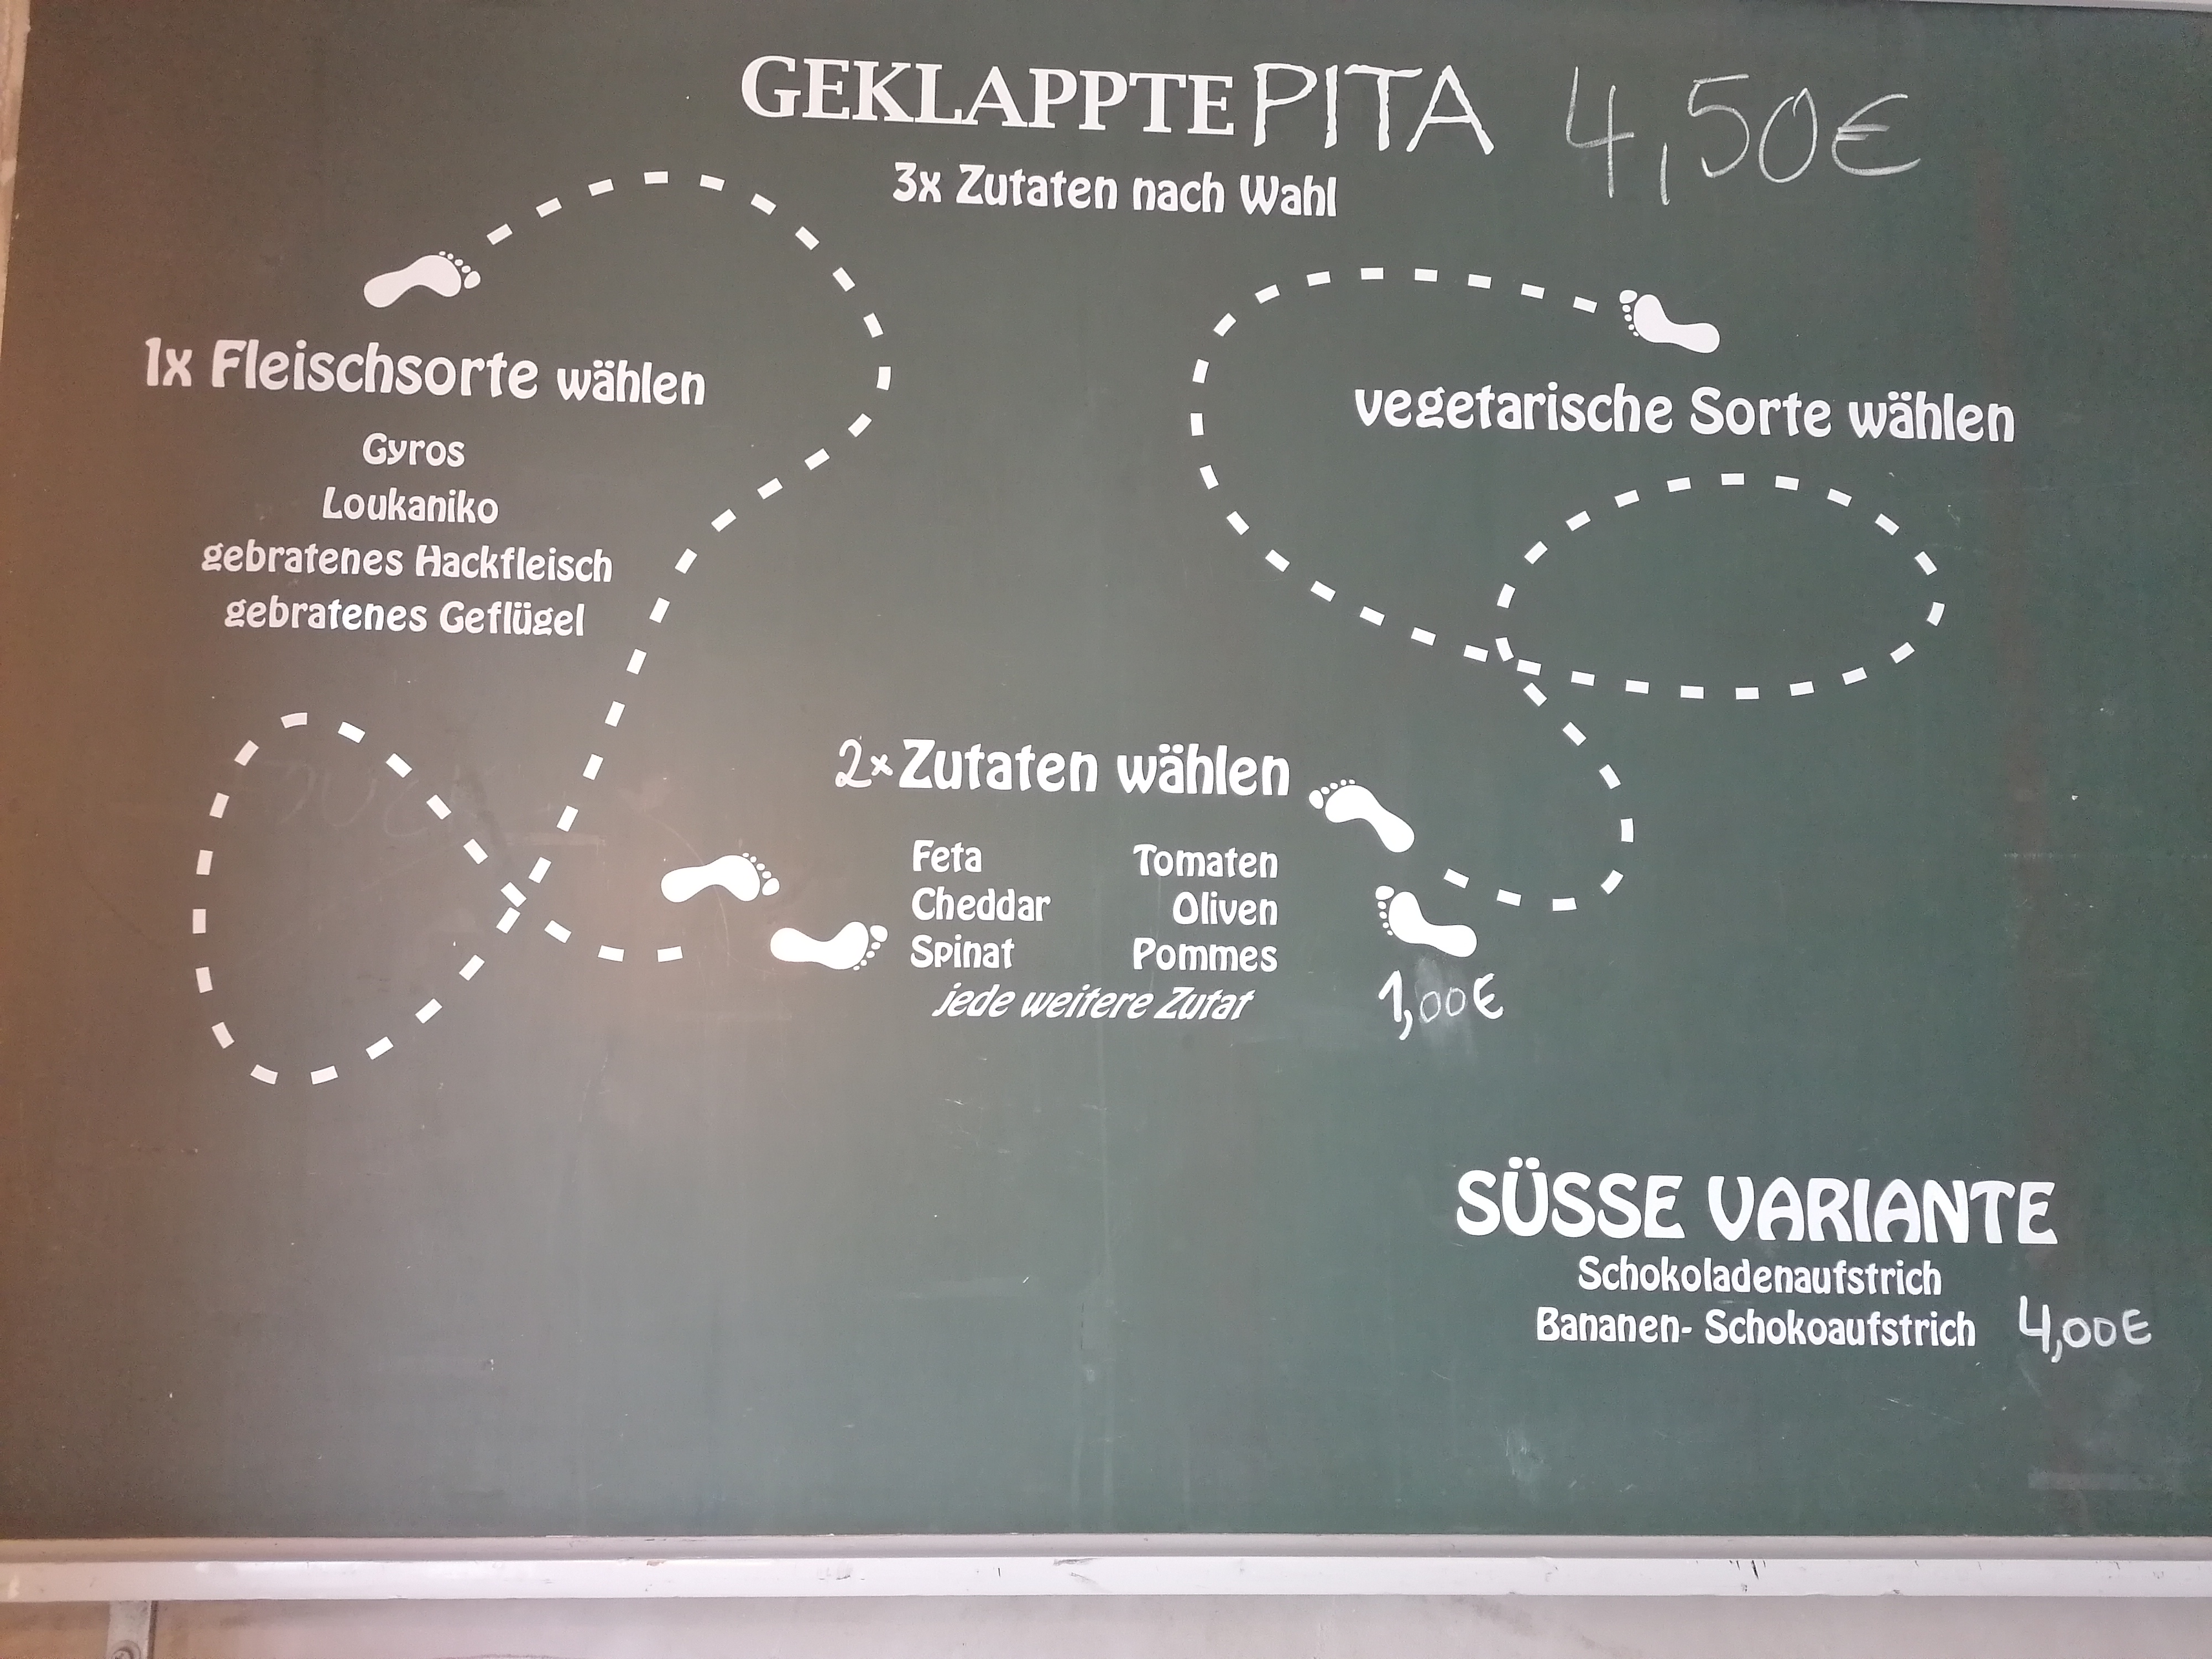 GEKLAPPTE PITA 4,50€
3x Zutaten nach Wahl
1x Fleischsorte wählen
Gyros
Loukaniko
gebratenes Hackfleisch
gebratenes Geflügel
vegetarische Sorte wählen
2x Zutaten wählen
Feta Tomaten
Cheddar Oliven
Spinat Pommes
jede weitere Zutat 1,00€
SÜSSE VARIANTE
Schokoladenaufstrich
Bananen- Schokoaufstrich 4,00€